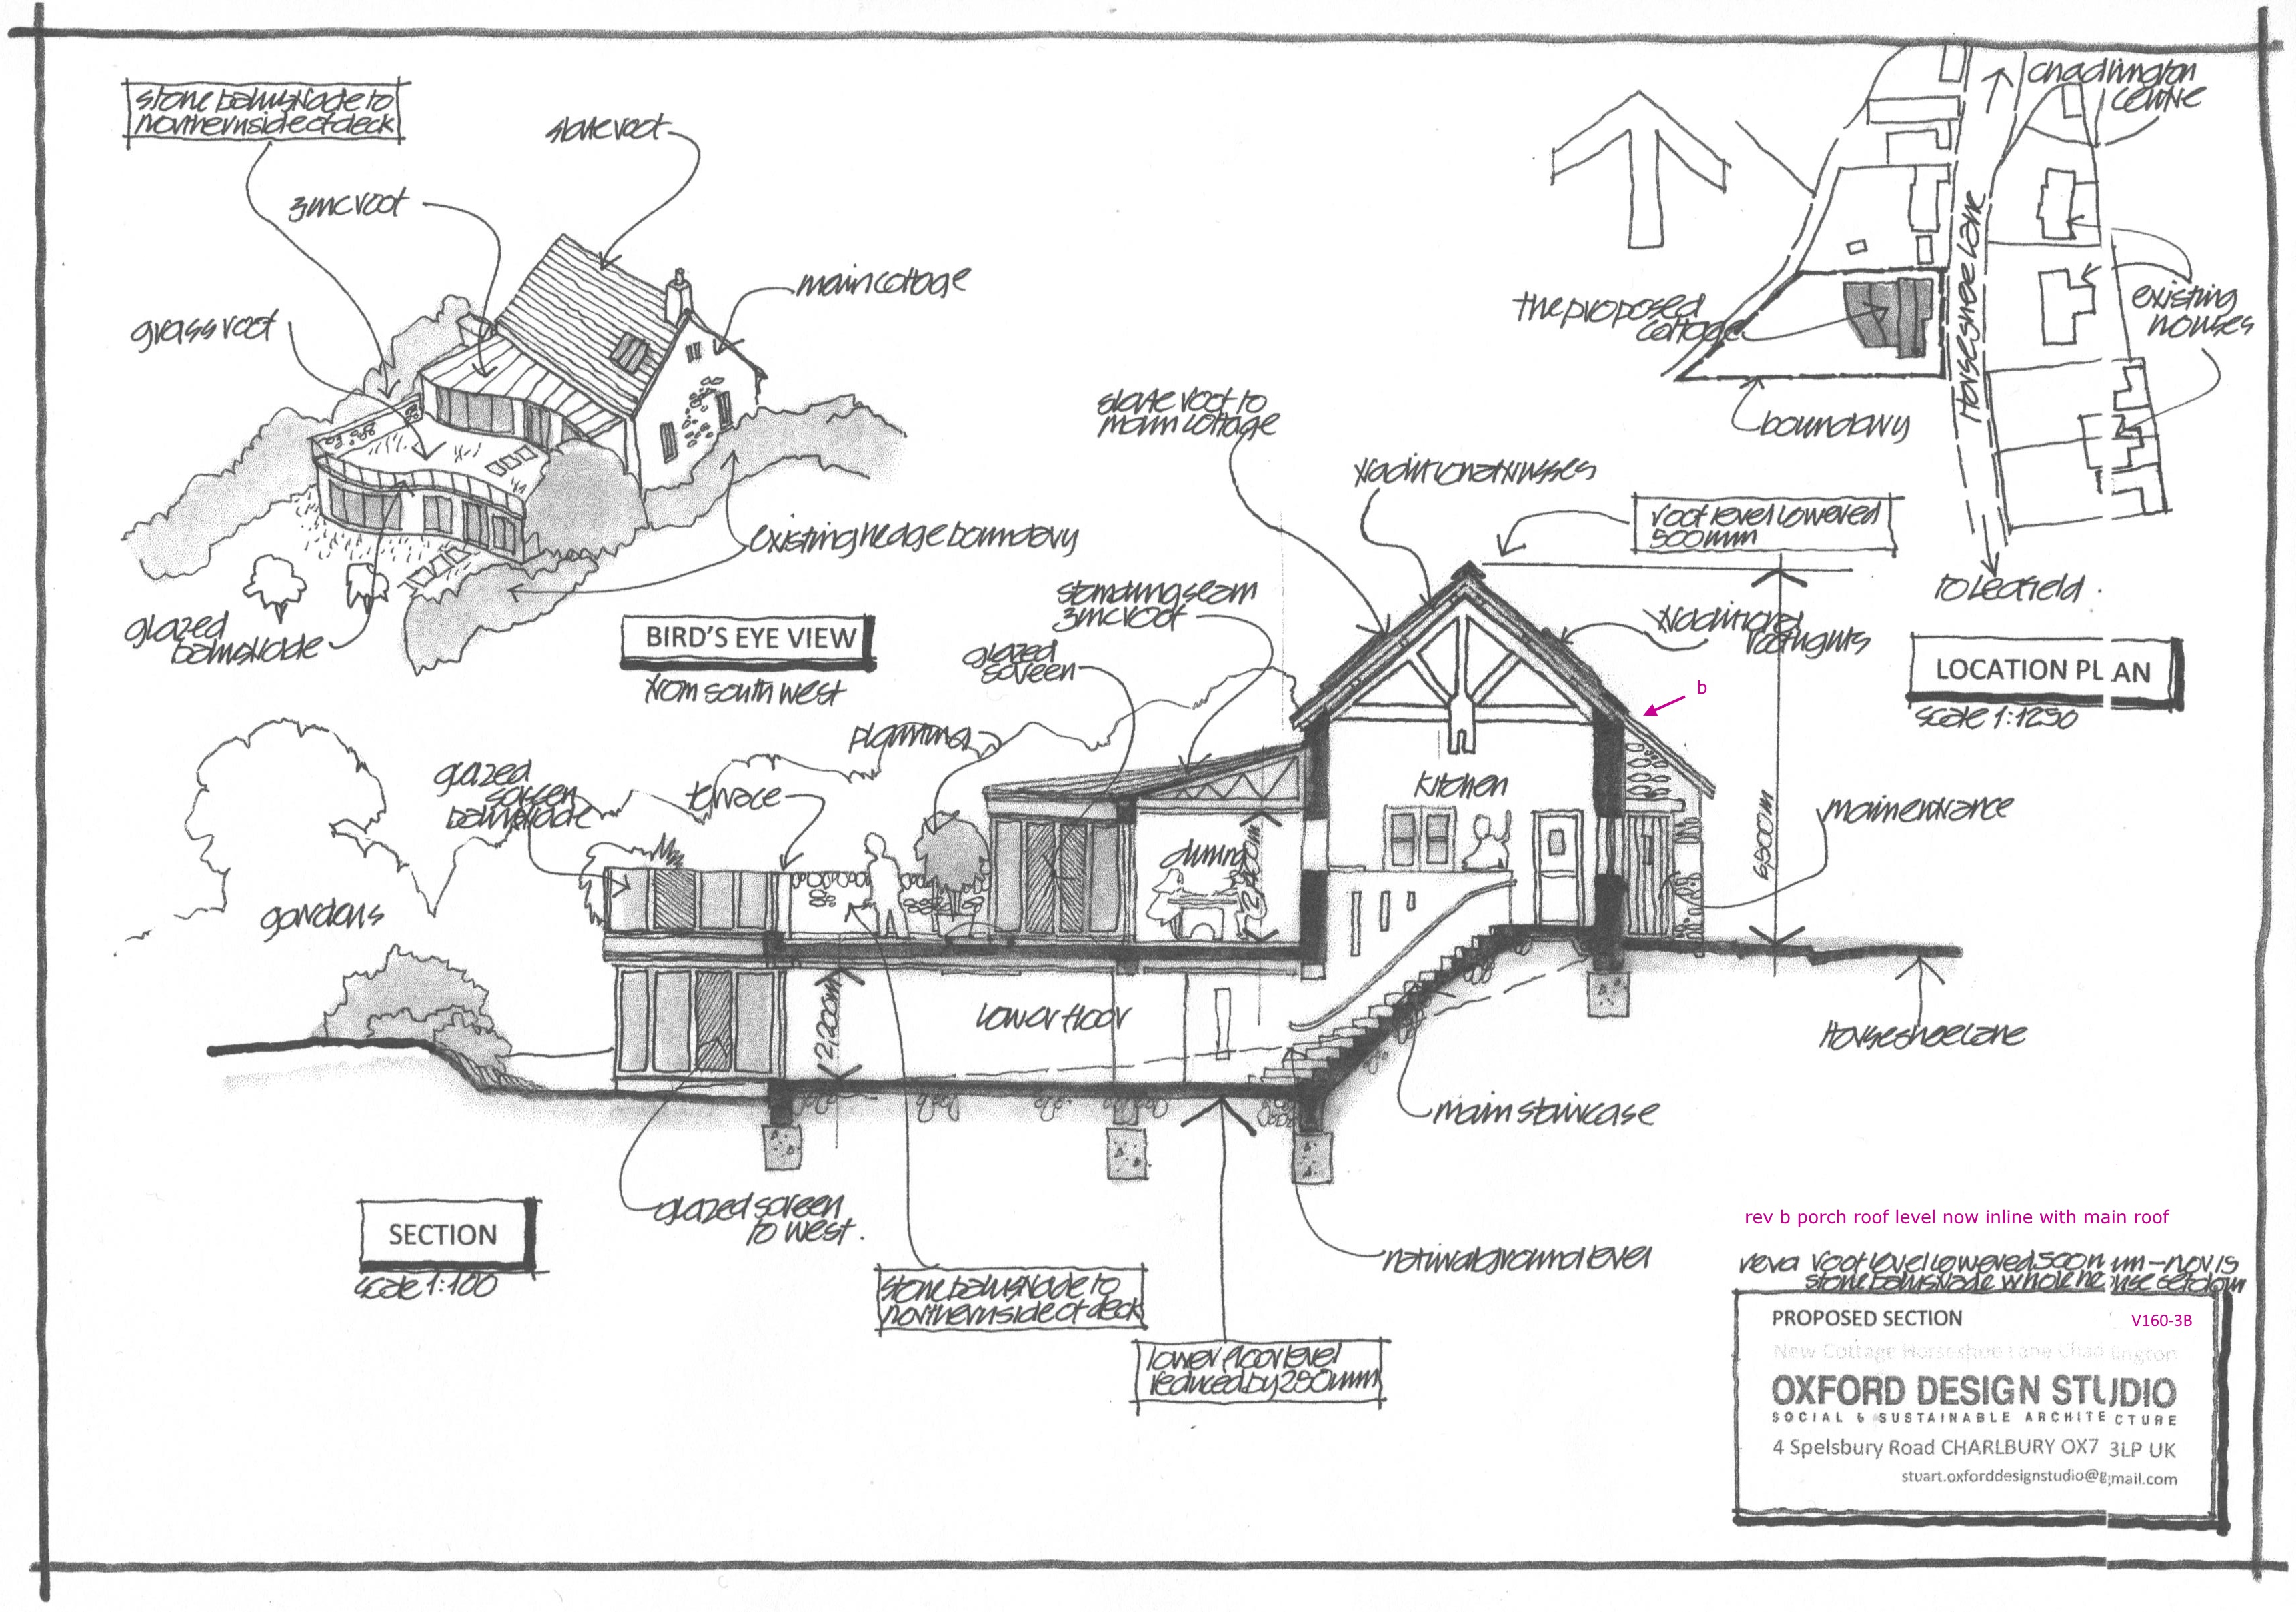 stone balustrade to
northern side of deck
slate roof
zinc roof
main cottage
grass roof
existing hedge boundary
glazed
balustrade
BIRD'S EYE VIEW
from south west
Chadlington
centre
Horseshoe Lane
the proposed
cottage
existing
houses
boundary
to Leafield
LOCATION PLAN
scale 1:1250
slate roof to
main cottage
traditional trusses
roof level lowered
500mm
standing seam
zinc roof
traditional
rooflights
glazed
screen
b
planting
glazed
screen
balustrade
terrace
kitchen
main entrance
dining
2,400m
gardens
lower floor
2,200m
Horseshoe Lane
main staircase
glazed screen
to west.
natural ground level
SECTION
scale 1:100
stone balustrade to
northern side of deck
lower floor level
reduced by 250mm
rev b porch roof level now inline with main roof
rev a roof level lowered 500mm - nov 15
stone balustrade whole house set down
PROPOSED SECTION
V160-3B
New Cottage Horseshoe Lane Chadlington
OXFORD DESIGN STUDIO
SOCIAL & SUSTAINABLE ARCHITECTURE
4 Spelsbury Road CHARLBURY OX7 3LP UK
stuart.oxforddesignstudio@gmail.com